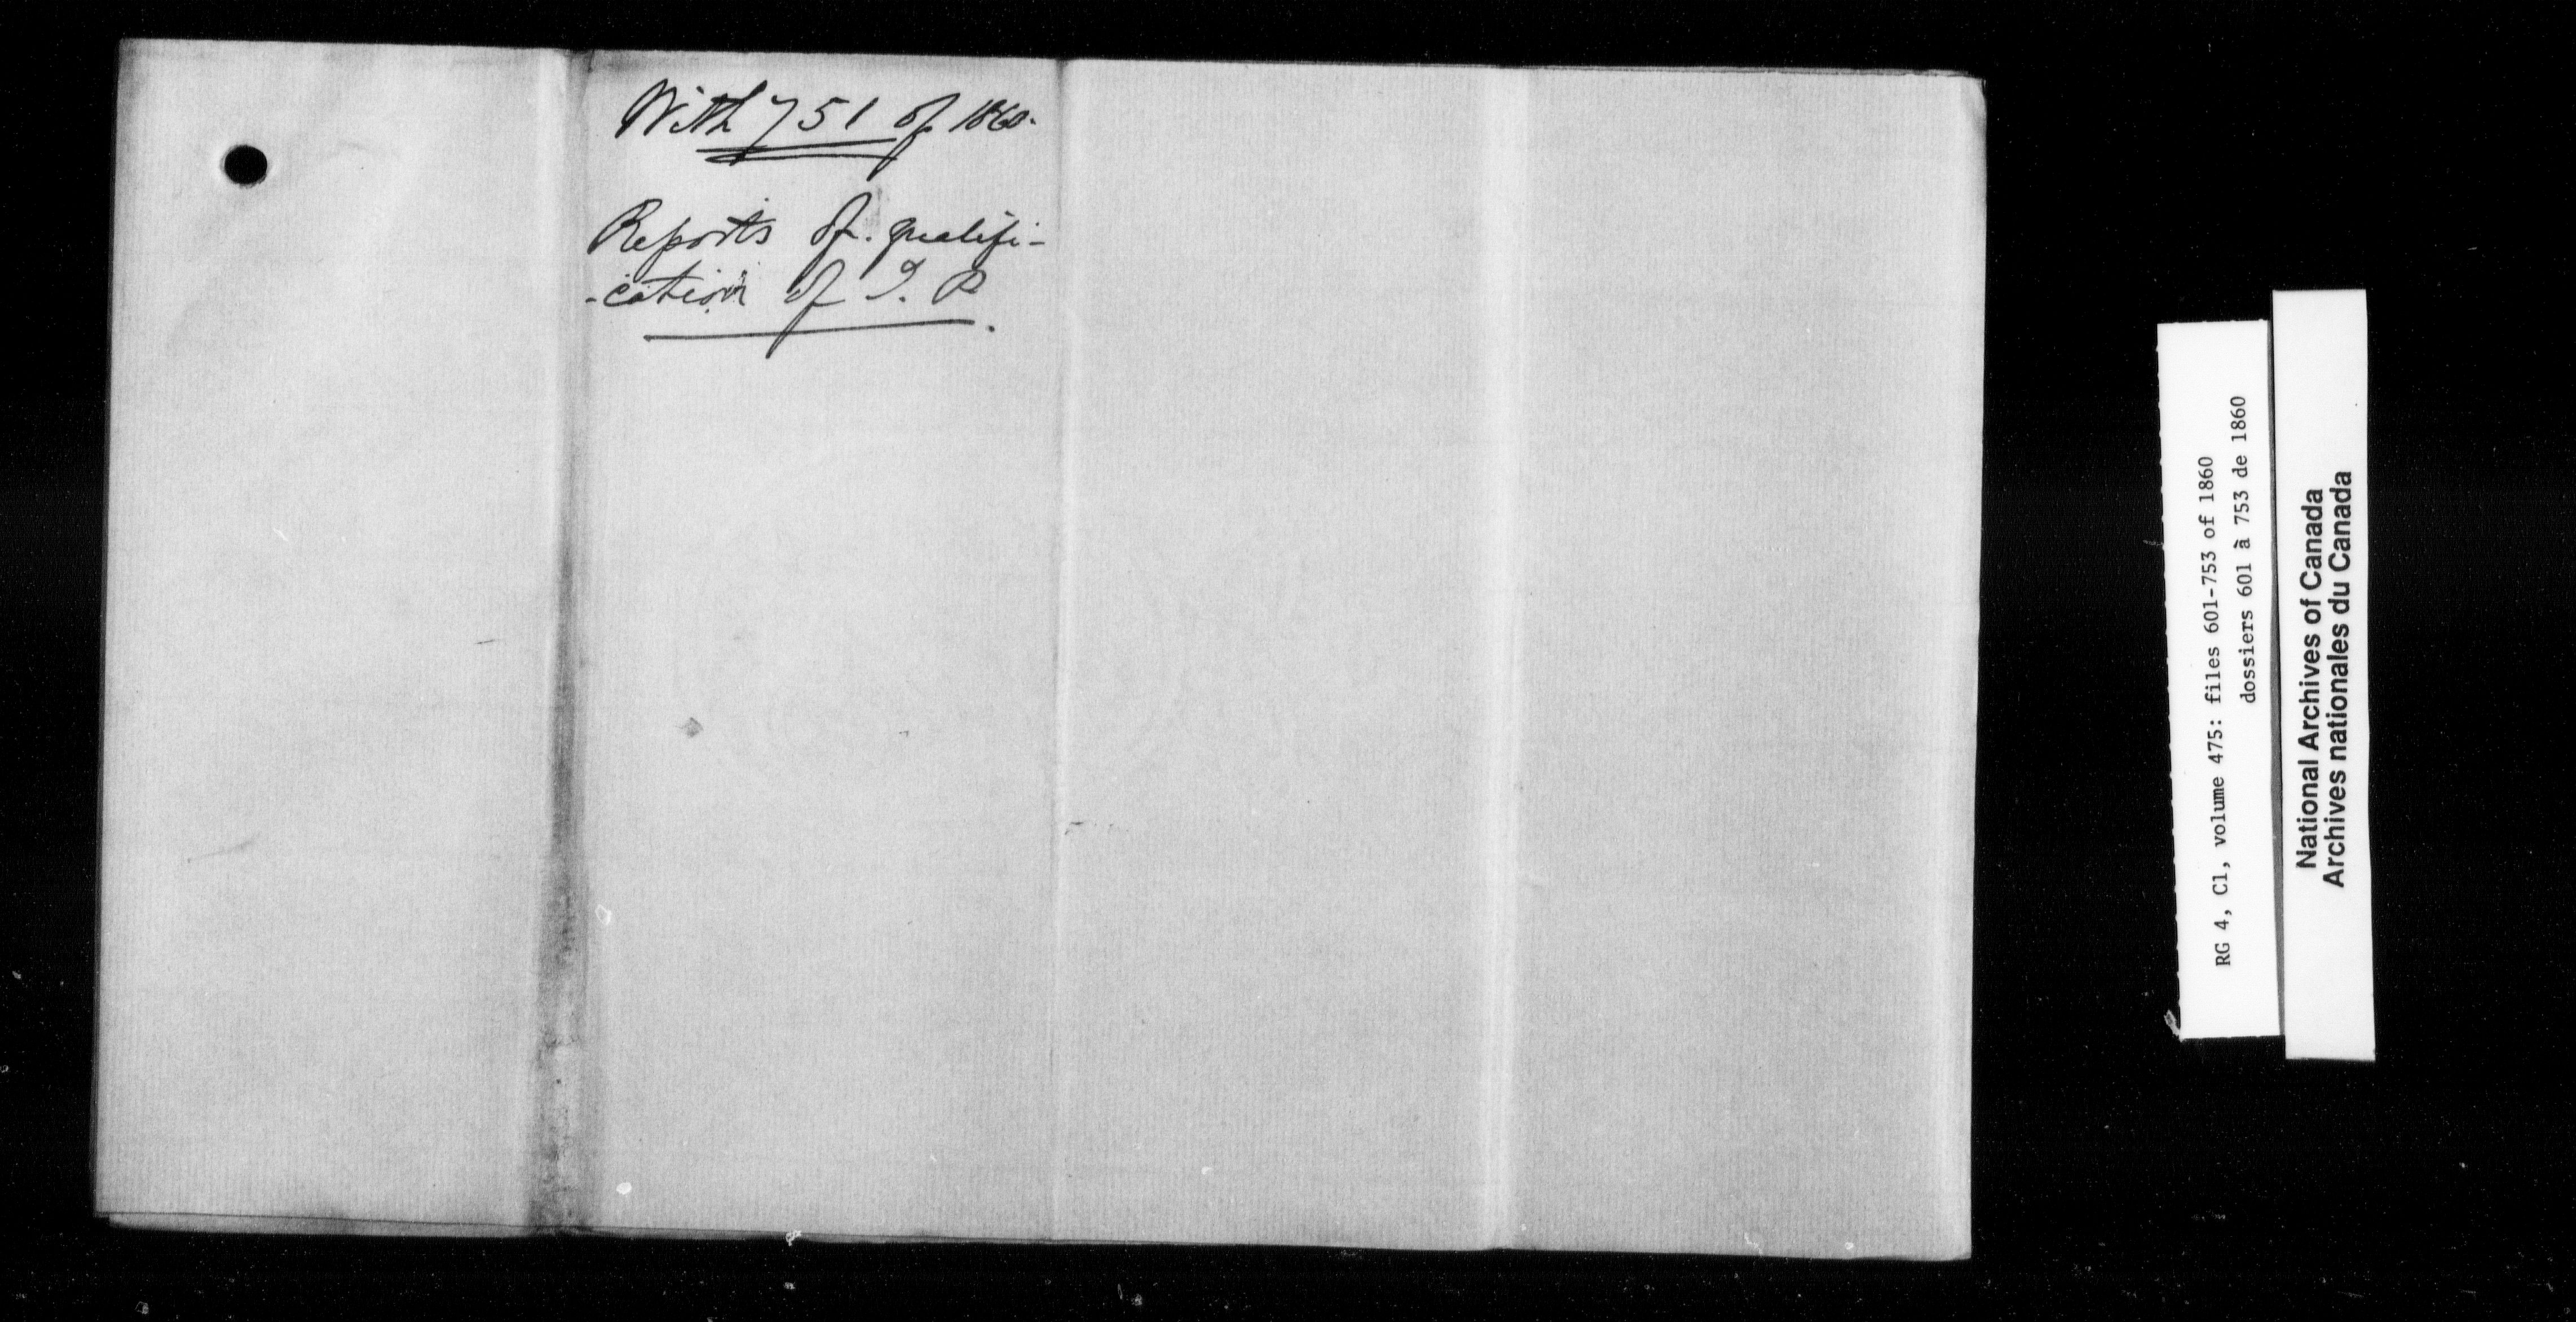 With 751 of 1860.
Reports of qualifi-
-cation of J. P.
RG 4, C1, volume 475: files 601-753 of 1860
dossiers 601 à 753 de 1860
National Archives of Canada
Archives nationales du Canada